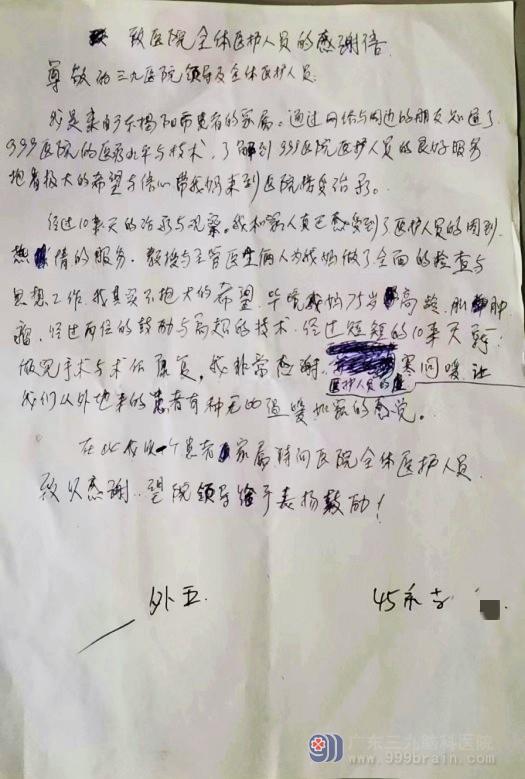 致医院全体医护人员的感谢信
尊敬的三九医院领导及全体医护人员:
我是来自于揭阳市患者的家属。通过网络与周边的朋友知道了
999医院的医疗水平与技术,了解到999医院医护人员的良好服务
抱着极大的希望与信心带我妈来到医院接受治疗。
经过10来天的治疗与观察。我和家人真正感受到了医护人员的周到
热情的服务。教授与主管医生俩人为我妈做了全面的检查与
思想工作,我其实不抱大的希望,毕竟我妈75岁高龄,脑肿
瘤,经过两位的鼓励与高超的技术,经过短短的10来天
做完手术与术后康复,我非常感谢,医护人员的 寒问暖,让
我们从外地来的患者有种无比温暖如家的感觉。
在此我以一个患者家属 向医院全体医护人员
致以感谢..望院领导给予表扬鼓励!
外五. 45床
广东三九脑科医院
www.999brain.com